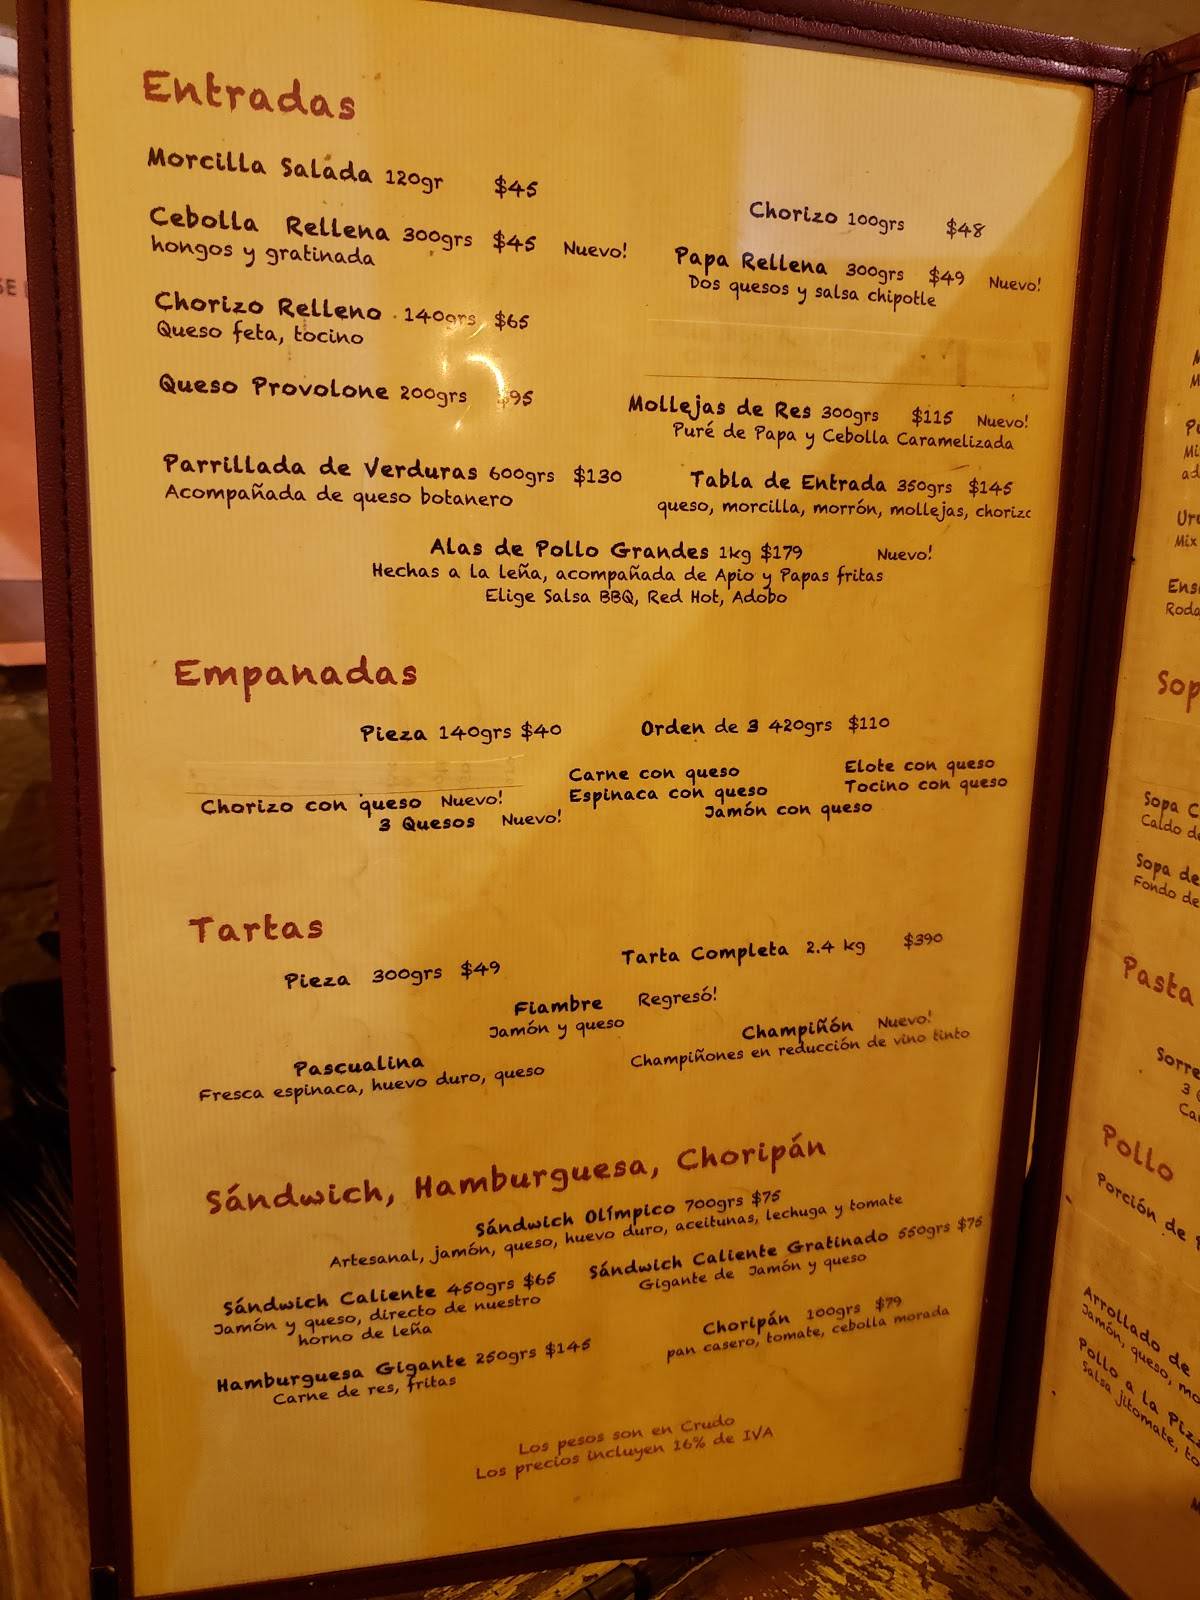 Entradas
Morcilla Salada 120gr $45
Chorizo 100grs $48
Cebolla Rellena 300grs $45 Nuevo!
hongos y gratinada
Papa Rellena 300grs $49 Nuevo!
Dos quesos y salsa chipotle
Chorizo Relleno 140grs $65
Queso feta, tocino
Queso Provolone 200grs $95
Mollejas de Res 300grs $115 Nuevo!
Puré de Papa y Cebolla Caramelizada
Parrillada de Verduras 600grs $130
Acompañada de queso botanero
Tabla de Entrada 350grs $145
queso, morcilla, morrón, mollejas, chorizo
Alas de Pollo Grandes 1kg $179 Nuevo!
Hechas a la leña, acompañada de Apio y Papas fritas
Elige Salsa BBQ, Red Hot, Adobo
Empanadas
Pieza 140grs $40
Orden de 3 420grs $110
Carne con queso
Elote con queso
Chorizo con queso Nuevo!
Espinaca con queso
Tocino con queso
3 Quesos Nuevo!
Jamón con queso
Tartas
Pieza 300grs $49
Tarta Completa 2.4 kg $390
Fiambre Regresó!
Jamón y queso
Pascualina
Fresca espinaca, huevo duro, queso
Champiñón Nuevo!
Champiñones en reducción de vino tinto
Sándwich, Hamburguesa, Choripán
Sándwich Olímpico 700grs $75
Artesanal, jamón, queso, huevo duro, aceitunas, lechuga y tomate
Sándwich Caliente 450grs $65
Jamón y queso, directo de nuestro
horno de leña
Sándwich Caliente Gratinado 550grs $75
Gigante de Jamón y queso
Hamburguesa Gigante 250grs $145
Carne de res, fritas
Choripán 100grs $79
pan casero, tomate, cebolla morada
Los pesos son en Crudo
Los precios incluyen 16% de IVA
Sopa
Caldo
Sopa de
Fondo de
Pasta
Pollo
Porción de
Arrollado de
Jamón, queso,
Pollo a la
Salsa jitomate,